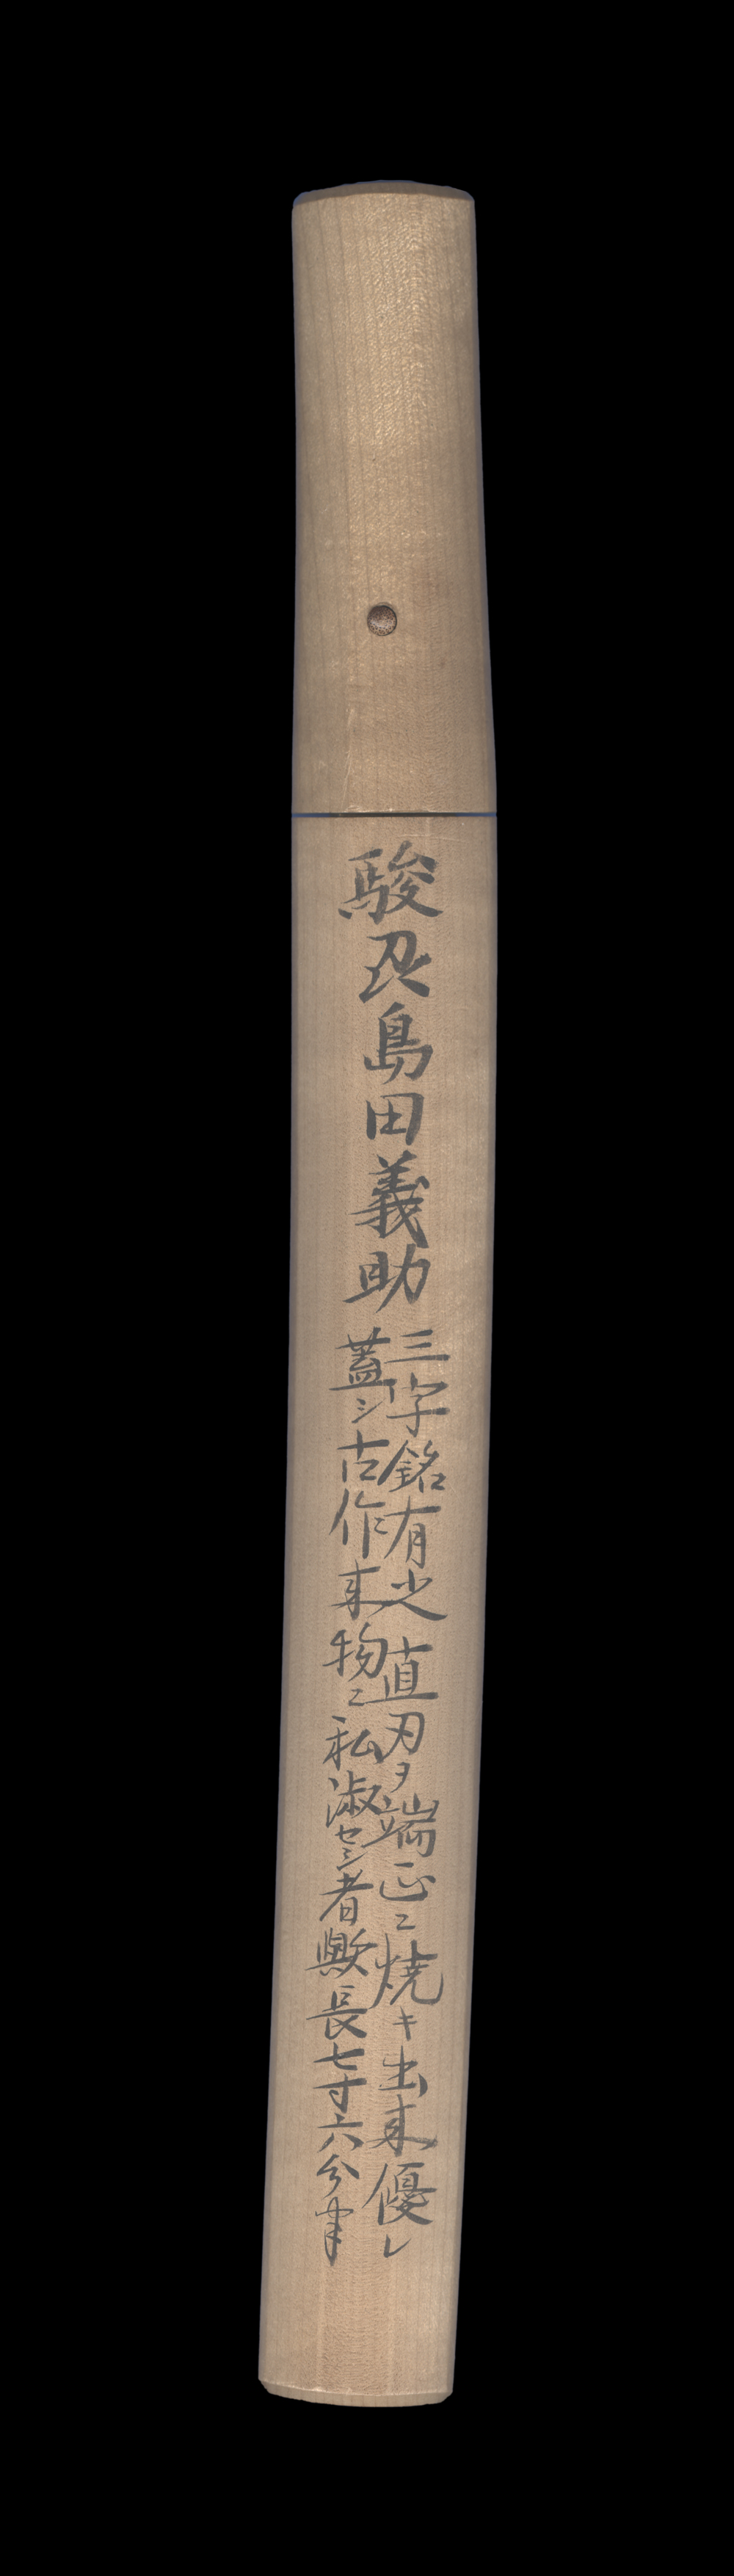 駿刕島田義助
三字銘有之直刃ヲ端正ニ焼キ出来優レ
蓋シ古作来物ニ私淑セシ者歟長七寸六分半